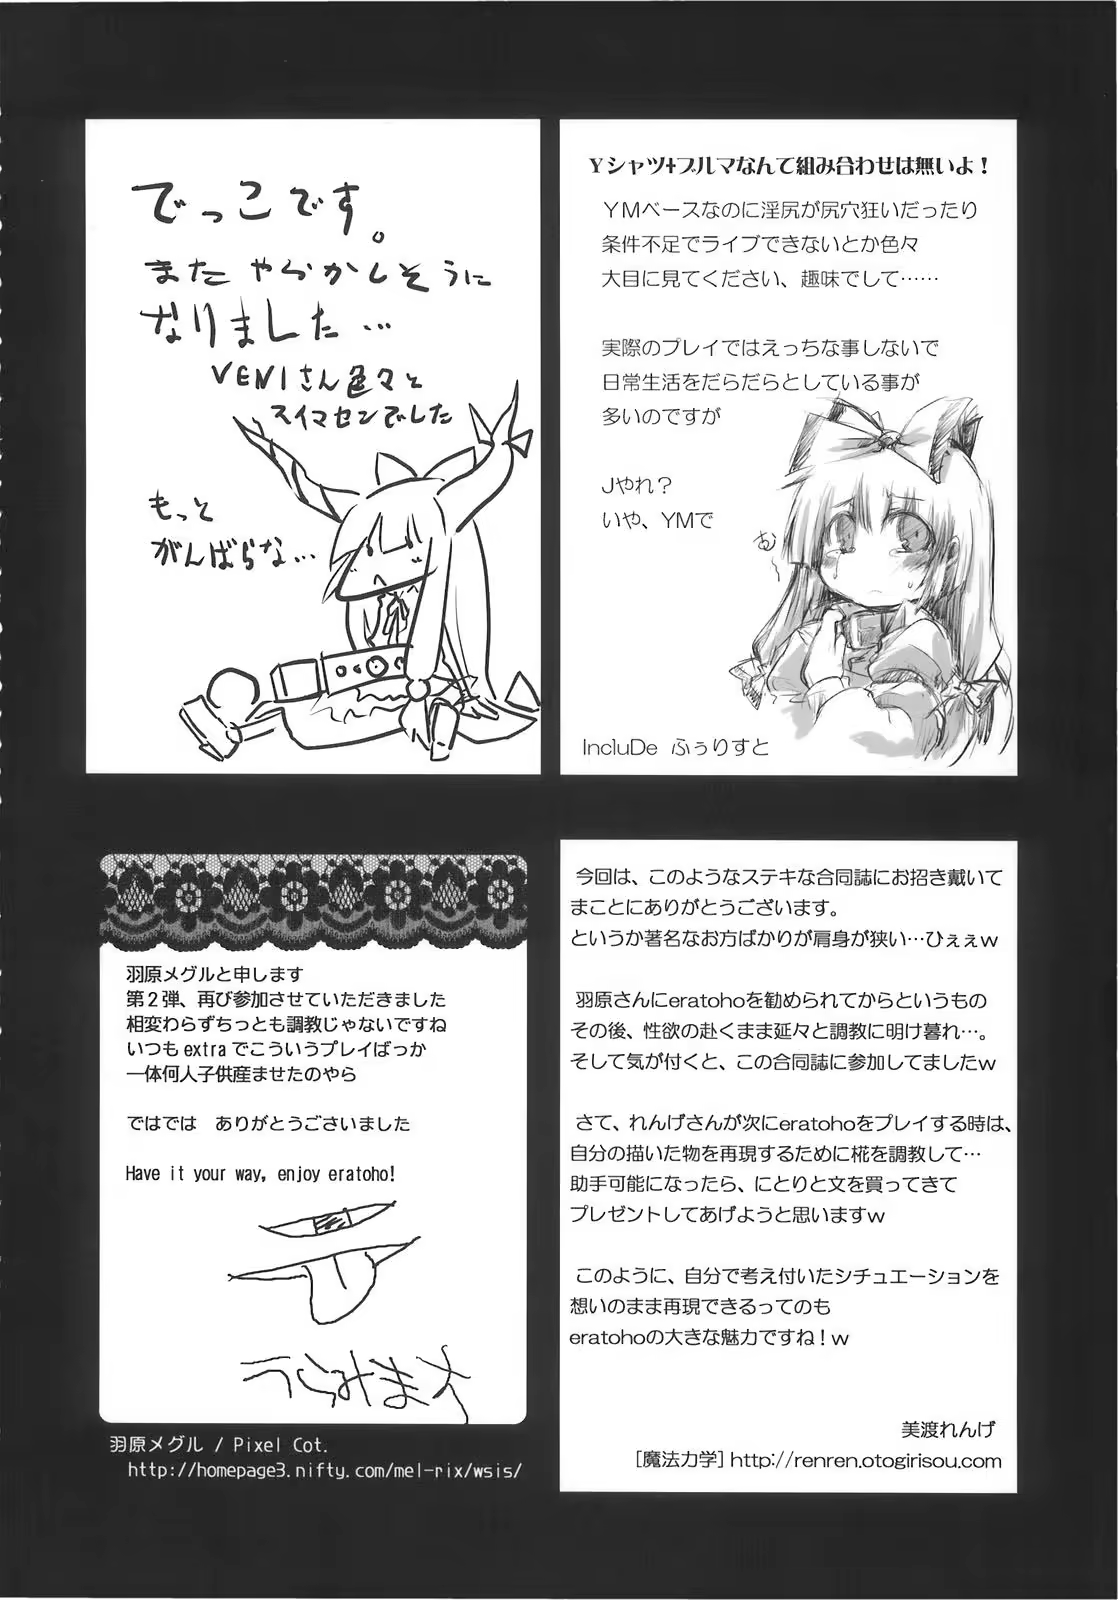 でっこです。
またやらかしそうに
なりました…
VENIさん色々と
スイマセンでした
もっと
がんばらな…
Yシャツ+ブルマなんて組み合わせは無いよ！
YMベースなのに淫尻が尻穴狂いだったり
条件不足でライブできないとか色々
大目に見てください、趣味でして……
実際のプレイではえっちな事しないで
日常生活をだらだらとしている事が
多いのですが
Jやれ？
いや、YMで
む
IncluDe ふぅりすと
羽原メグルと申します
第2弾、再び参加させていただきました
相変わらずちっとも調教じゃないですね
いつもextraでこういうプレイばっか
一体何人子供産ませたのやら
ではでは　ありがとうございました
Have it your way, enjoy eratoho!
うらみます
羽原メグル / Pixel Cot.
http://homepage3.nifty.com/mel-rix/wsis/
今回は、このようなステキな合同誌にお招き戴いて
まことにありがとうございます。
というか著名なお方ばかりが肩身が狭い…ひぇぇw
羽原さんにeratohoを勧められてからというもの
その後、性欲の赴くまま延々と調教に明け暮れ…。
そして気が付くと、この合同誌に参加してましたw
さて、れんげさんが次にeratohoをプレイする時は、
自分の描いた物を再現するために椛を調教して…
助手可能になったら、にとりと文を買ってきて
プレゼントしてあげようと思いますw
このように、自分で考え付いたシチュエーションを
想いのまま再現できるってのも
eratohoの大きな魅力ですね！w
美渡れんげ
[魔法力学] http://renren.otogirisou.com